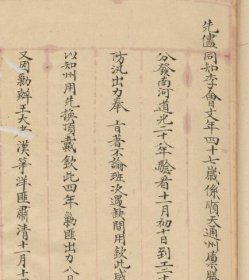 先儘同知李會文年四十七歲係順天通州廩
分發南河道光二十八年驗看十一月初十日到工二十
防汛出力奉 上旨著不論班次遇缺間用欽此咸
以知州用先換頂戴欽此四年勦匪出力八月
又因勦辦王大老漢等洋匪肅清十月十